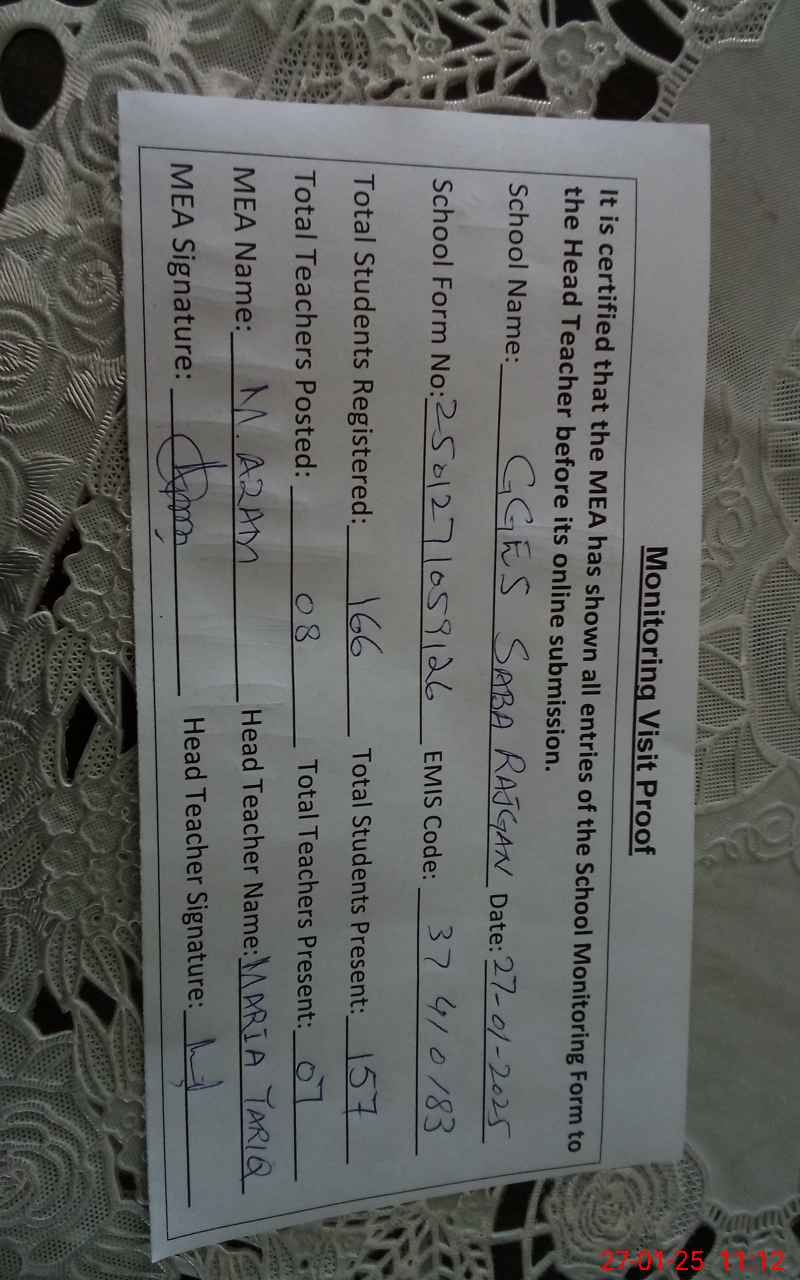 Monitoring Visit Proof
It is certified that the MEA has shown all entries of the School Monitoring Form to
the Head Teacher before its online submission.
School Name: GGES SABA RAJGAN Date: 27-01-2025
School Form No: 2501271059126 EMIS Code: 37410183
Total Students Registered: 166 Total Students Present: 157
Total Teachers Posted: 08 Total Teachers Present: 07
MEA Name: M. AZAM Head Teacher Name: MARIA TARIQ
MEA Signature: Head Teacher Signature:
27-01-25 11:12